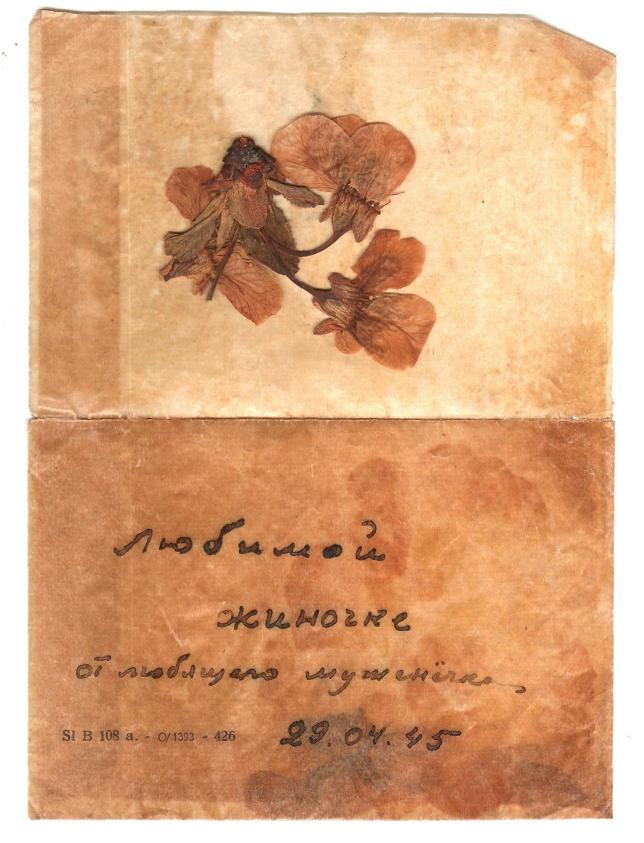 Любимой
жиночке
от любящего муженёчка
SI B 108 a. - O/1393 - 426
29.04.45